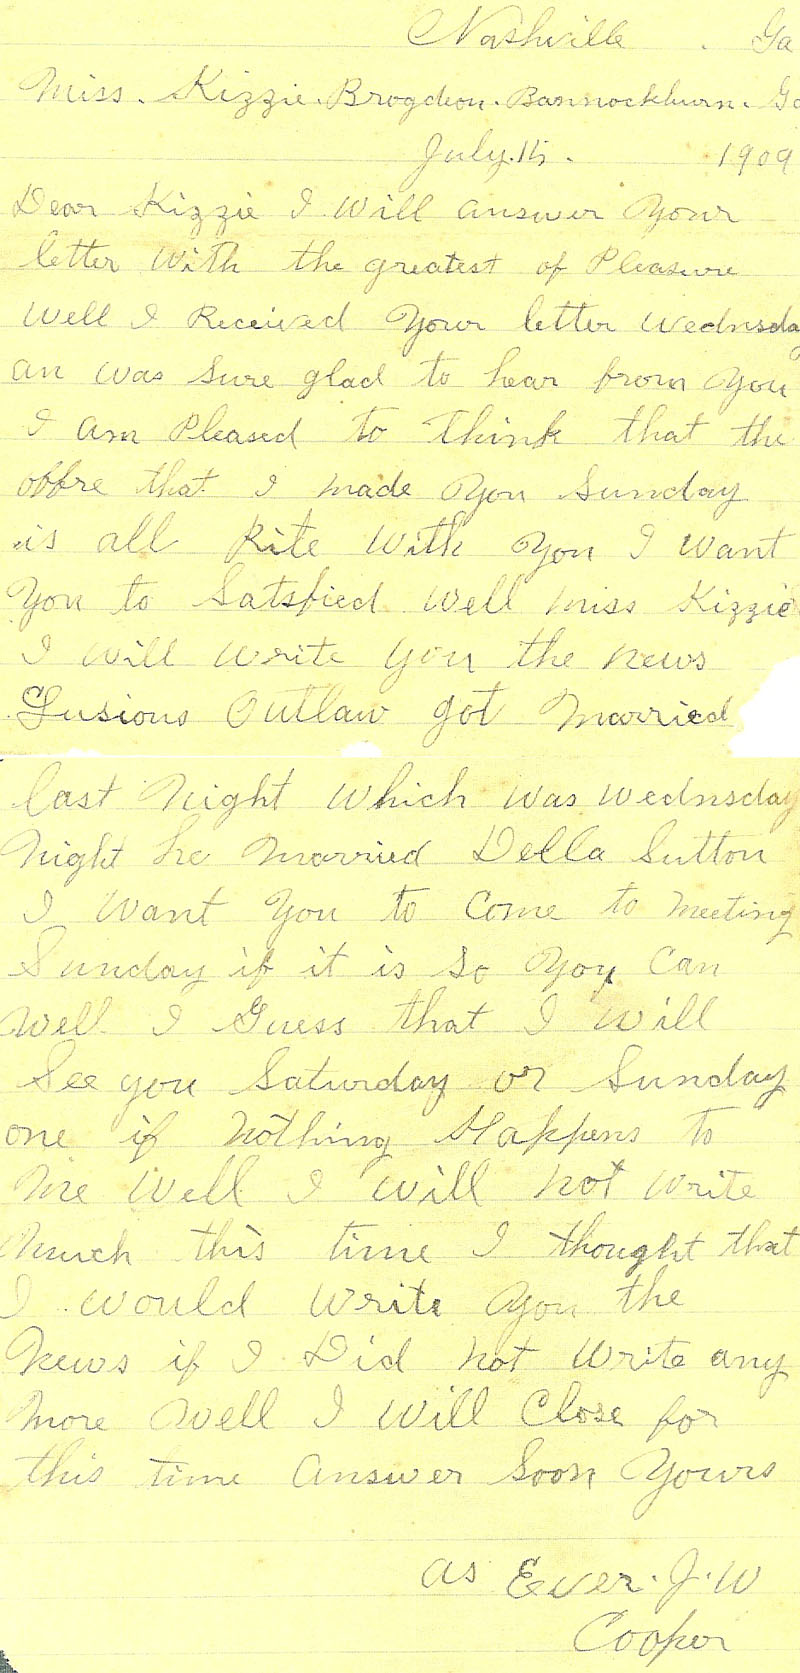 Nashville. Ga
Miss. Kizzie. Brogdon. Bannockburn. Ga
July. 15. 1909
Dear Kizzie I Will answer Your
letter With the greatest of Pleasure
Well I Received Your letter Wednsday
an Was Sure glad to hear from You
I am Pleased to think that the
offre that I made You Sunday
is all Rite With You I Want
You to Satsfied Well miss Kizzie
I will write you the news
Lusious Outlaw got married
last Night Which Was Wednsday
Night he married Della Sutton
I Want You to Come to meeting
Sunday if it is so You Can
Well I Guess that I Will
See you Saturday or Sunday
one if nothing Happens to
me Well I will not Write
much this time I thought that
I would Write You the
News if I Did not Write any
more Well I Will Close for
this time answer Soon Yours
as Ever. J. W
Cooper